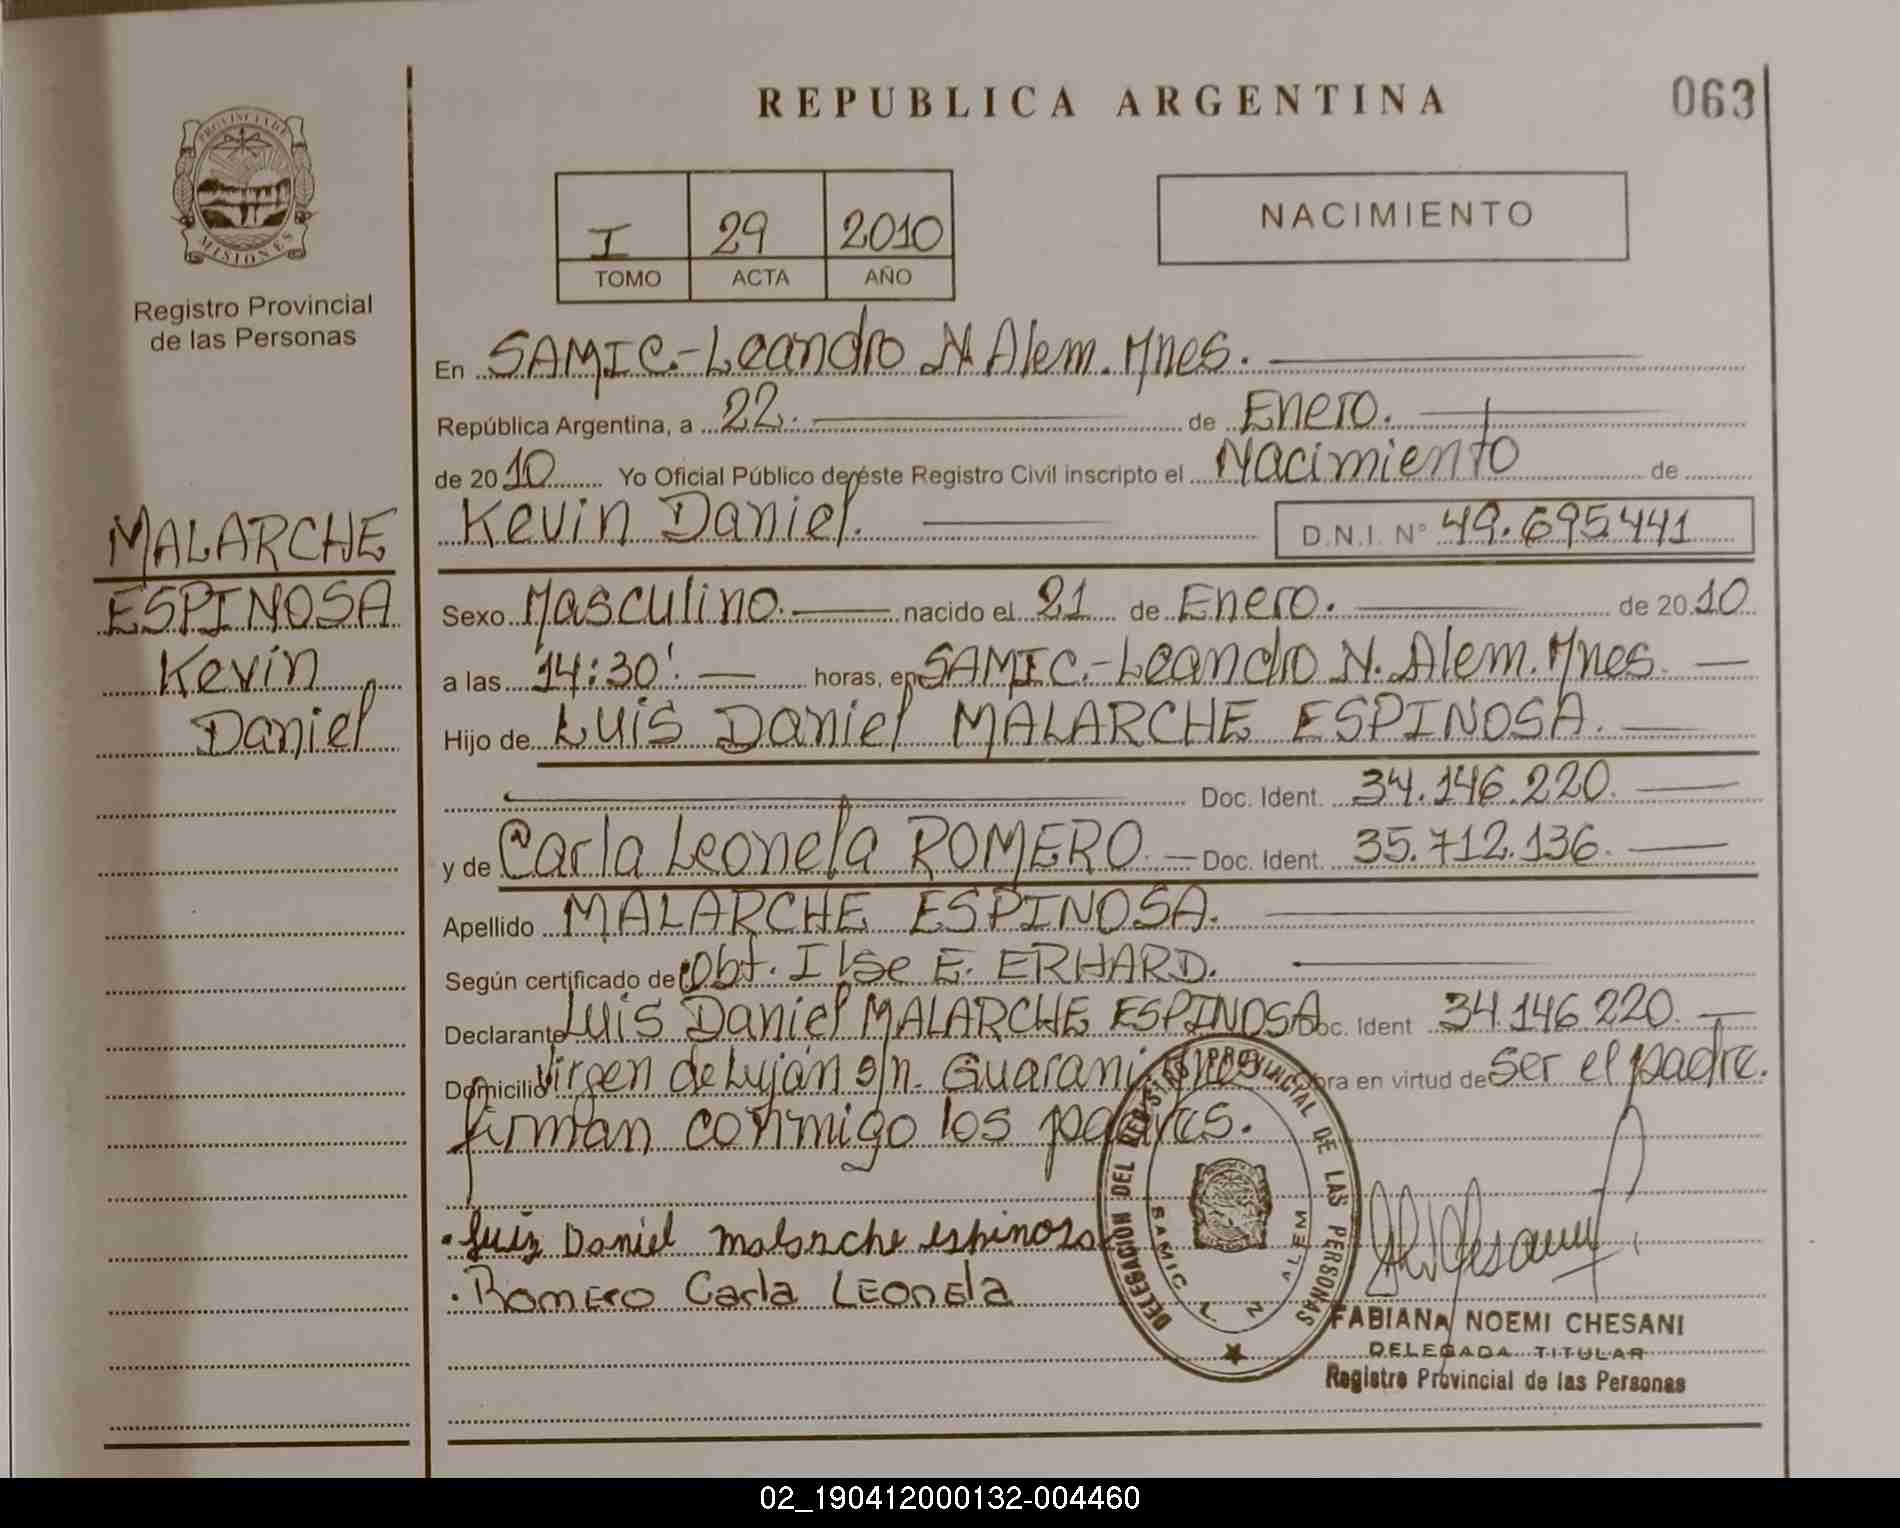 REPUBLICA ARGENTINA
063
PROVINCIA DE
MISIONES
Registro Provincial
de las Personas
I 29 2010
TOMO ACTA AÑO
NACIMIENTO
En SAMIC.-Leandro N. Alem. Mnes.
República Argentina, a 22. de Enero.
de 2010 Yo Oficial Público de éste Registro Civil inscripto el Nacimiento de
Kevin Daniel. D.N.I. N° 49.695.441
MALARCHE
ESPINOSA
Kevin
Daniel
Sexo Masculino. nacido el 21 de Enero. de 2010
a las 14:30'. horas, en SAMIC.-Leandro N. Alem. Mnes.
Hijo de Luis Daniel MALARCHE ESPINOSA.
Doc. Ident. 34.146.220.
y de Carla Leonela ROMERO. Doc. Ident. 35.712.136.
Apellido MALARCHE ESPINOSA.
Según certificado de Obt. Ilse E. ERHARD.
Declarante Luis Daniel MALARCHE ESPINOSA Doc. Ident 34.146.220.
Domicilio Virgen de Luján s/n. Guaraní Mnes obra en virtud de ser el padre.
firman conmigo los padres.
Luiz Daniel malarche espinosa
Romero Carla Leonela
DELEGACION DEL REGISTRO PROVINCIAL DE LAS PERSONAS
SAMIC L N ALEM
FABIANA NOEMI CHESANI
DELEGADA TITULAR
Registro Provincial de las Personas
02_190412000132-004460